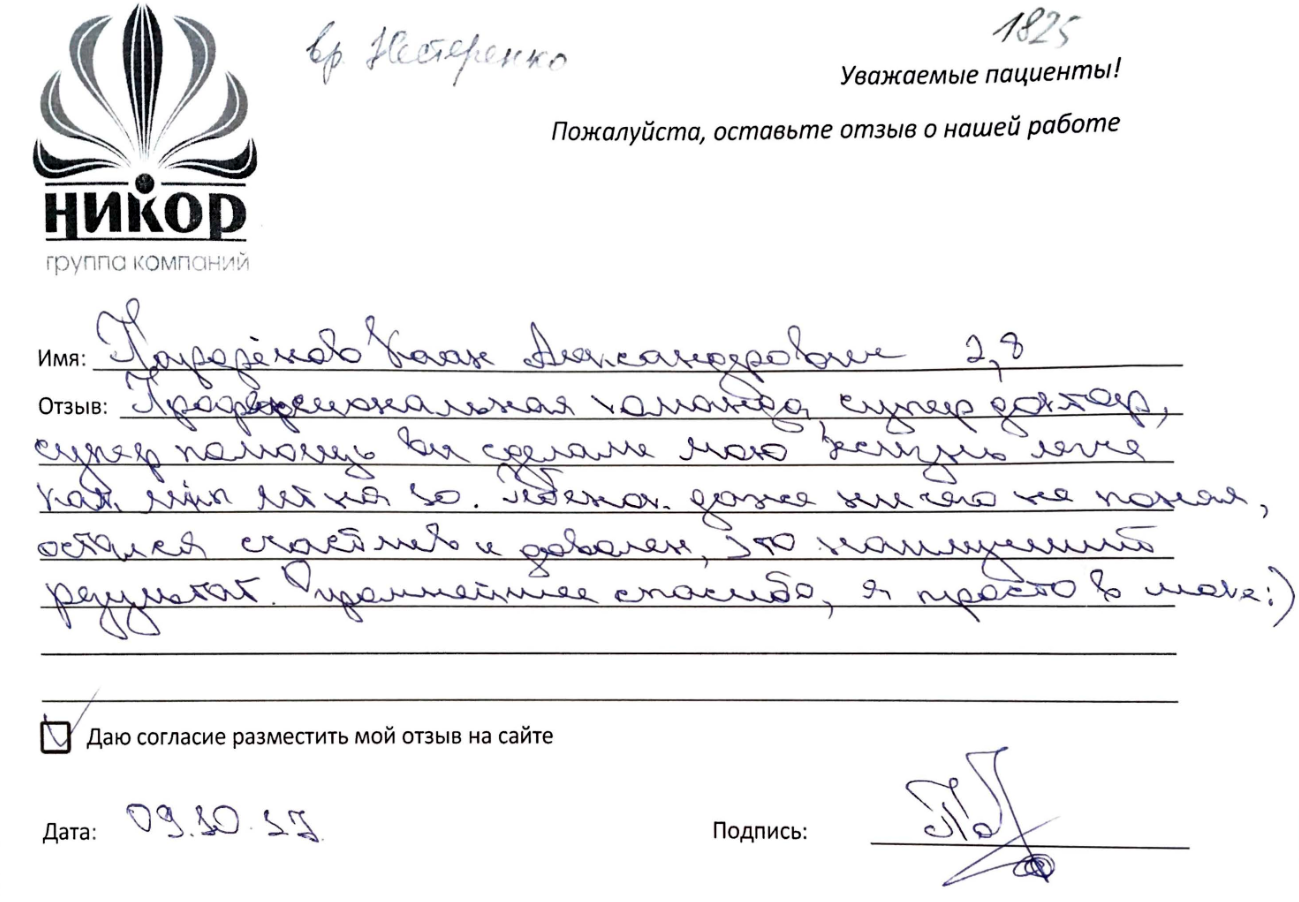 вр. Нестеренко
1825
Уважаемые пациенты!
Пожалуйста, оставьте отзыв о нашей работе
НИКОР
группа компаний
Имя: Александрович 2,8
Отзыв: Профессиональная команда, супер доктор,
супер помощь вы сделали мою жизнь легче
как мин лет на 10. Ребенок даже ничего не понял,
остался счастлив и доволен, это наилучший
результат. Огромнейшее спасибо, я просто в шоке:)
Даю согласие разместить мой отзыв на сайте
Дата: 09.10.17
Подпись: